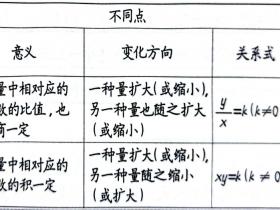 不同点
意义 变化方向 关系式
量中相对应的 一种量扩大(或缩小),
数的比值,也 另一种量也随之扩大 y/x=k(k≠0
商一定 (或缩小)
量中相对应的 一种量扩大(或缩小),
数的积一定 另一种量随之缩小 xy=k(k≠0
(或扩大)